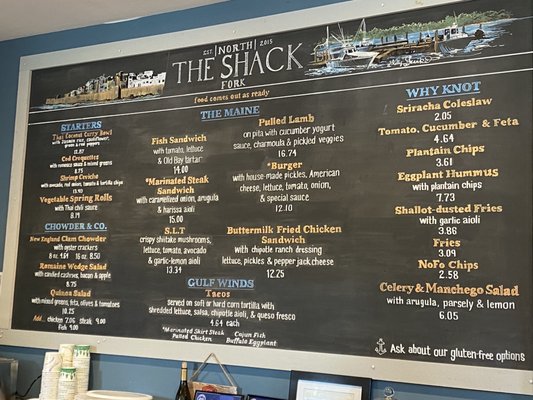 EST. |NORTH| 2015
THE SHACK
FORK
food comes out as ready
STARTERS
Thai Coconut Curry Bowl
with Jasmine rice, cauliflower,
green & red peppers
12.87
Cod Croquettes
with romesco sauce & mixed greens
8.75
Shrimp Ceviche
with avocado, red onion, tomato & tortilla chips
13.40
Vegetable Spring Rolls
with Thai chili sauce
8.19
CHOWDER & CO.
New England Clam Chowder
with oyster crackers
8 oz. 4.64 16 oz. 8.50
Romaine Wedge Salad
with candied cashews, bacon & apple
8.75
Quinoa Salad
with mixed greens, feta, olives & tomatoes
10.25
Add... chicken 7.06 steak 9.00
Fish 9.00
THE MAINE
Fish Sandwich
with tomato, lettuce
& Old Bay tartar
14.00
*Marinated Steak
Sandwich
with caramelized onion, arugula
& harissa aioli
15.00
S.L.T
crispy shiitake mushrooms,
lettuce, tomato, avocado
& garlic-lemon aioli
13.34
Pulled Lamb
on pita with cucumber yogurt
sauce, charmoula & pickled veggies
16.74
*Burger
with house-made pickles, American
cheese, lettuce, tomato, onion,
& special sauce
12.10
Buttermilk Fried Chicken
Sandwich
with chipotle ranch dressing
lettuce, pickles & pepper jack cheese
12.25
GULF WINDS
Tacos
served on soft or hard corn tortilla with
shredded lettuce, salsa, chipotle aioli, & queso fresco
4.64 each
*Marinated Skirt Steak Cajun Fish
Pulled Chicken Buffalo Eggplant
WHY KNOT
Sriracha Coleslaw
2.05
Tomato, Cucumber & Feta
4.64
Plantain Chips
3.61
Eggplant Hummus
with plantain chips
7.73
Shallot-dusted Fries
with garlic aioli
3.86
Fries
3.09
NoFo Chips
2.58
Celery & Manchego Salad
with arugula, parsely & lemon
6.05
Ask about our gluten-free options